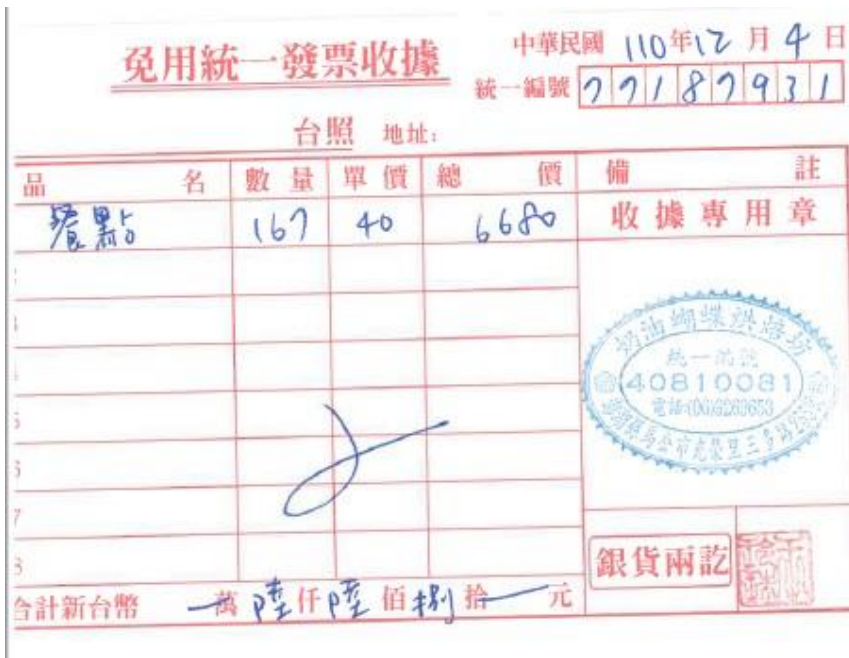 免用統一發票收據
中華民國 110年12月4日
統一編號 77187931
台照 地址:
品名 數量 單價 總價 備註
餐點 167 40 6680 收據專用章
奶油蝴蝶烘焙坊
統一編號
40810081
電話:(06)9269653
5
6
7
8
銀貨兩訖
合計新台幣 一萬陸仟陸佰捌拾一元